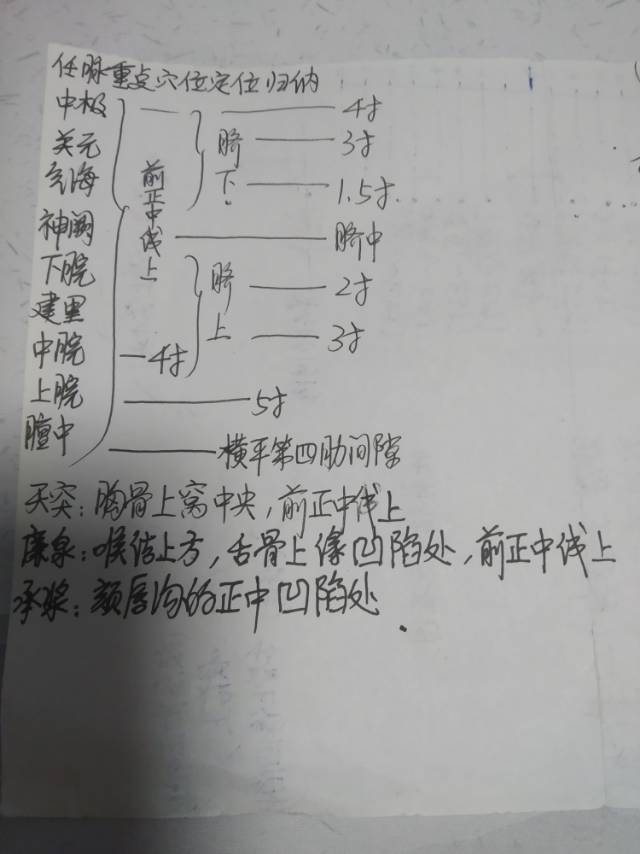 任脉重点穴位定位归纳
中极 4寸
关元 脐 3寸
气海 前正中线上 下 1.5寸
神阙 脐中
下脘 脐 2寸
建里 上 3寸
中脘 4寸
上脘 5寸
膻中 横平第四肋间隙
天突：胸骨上窝中央，前正中线上
廉泉：喉结上方，舌骨上缘凹陷处，前正中线上
承浆：颏唇沟的正中凹陷处